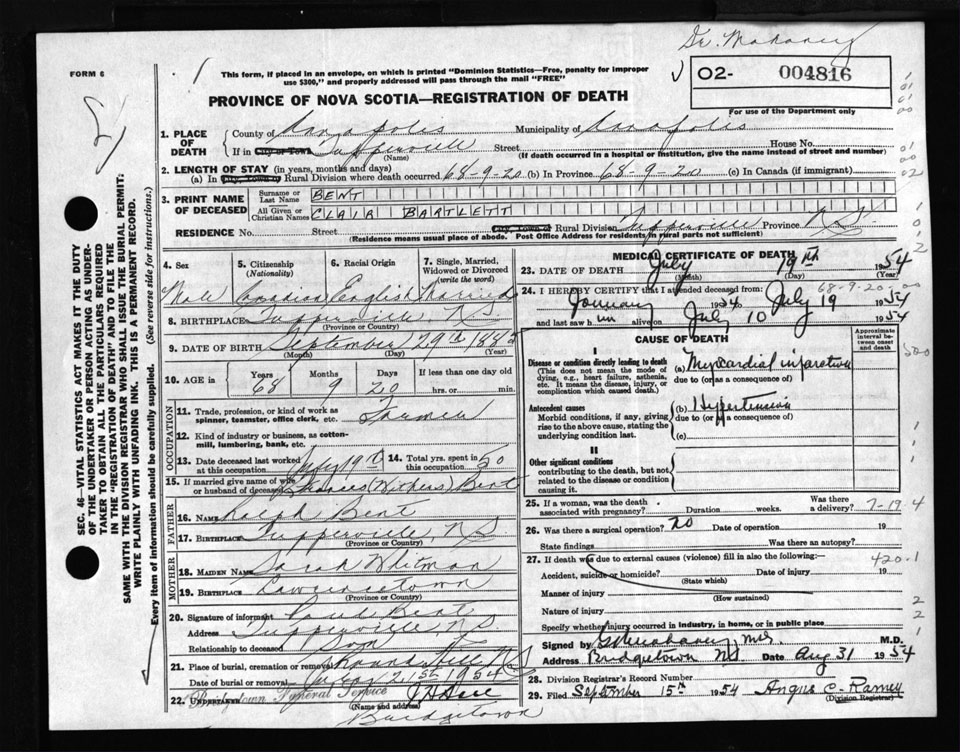 Dr. Mahaney
FORM 6
This form, if placed in an envelope, on which is printed "Dominion Statistics—Free, penalty for improper
use $300," and properly addressed will pass through the mail "FREE"
02- 004816
For use of the Department only
PROVINCE OF NOVA SCOTIA—REGISTRATION OF DEATH
1. PLACE OF DEATH
County of Annapolis Municipality of Annapolis
If in City or Town Tupperville Street House No.
(Name) (If death occurred in a hospital or institution, give the name instead of street and number)
2. LENGTH OF STAY (in years, months and days)
(a) In City, Town or Rural Division where death occurred 68-9-20 (b) In Province 68-9-20 (c) In Canada (if immigrant)
3. PRINT NAME OF DECEASED
Surname or Last Name BENT
All Given or Christian Names CLAIR BARTLETT
RESIDENCE No. Street City, Town or Rural Division Tupperville Province N.S.
(Residence means usual place of abode. Post Office Address for residents in rural parts not sufficient)
4. Sex 5. Citizenship (Nationality) 6. Racial Origin 7. Single, Married, Widowed or Divorced (write the word)
Male Canadian English Married
8. BIRTHPLACE Tupperville, N.S.
(Province or Country)
9. DATE OF BIRTH September 29th 1885
(Month) (Day) (Year)
10. AGE in Years Months Days If less than one day old
68 9 20 hrs. or min.
OCCUPATION
11. Trade, profession, or kind of work as spinner, teamster, office clerk, etc. Farmer
12. Kind of industry or business, as cotton-mill, lumbering, bank, etc.
13. Date deceased last worked at this occupation July 19th
14. Total yrs. spent in this occupation 50
15. If married give name of wife or husband of deceased Frances (Withers) Bent
FATHER
16. Name Ralph Bent
17. Birthplace Tupperville, N.S.
(Province or Country)
MOTHER
18. Maiden Name Sarah Whitman
19. Birthplace Lawrencetown
(Province or Country)
20. Signature of informant Bent
Address Tupperville, N.S.
Relationship to deceased Son
21. Place of burial, cremation or removal Round Hill N.S.
Date of burial or removal July 21st 1954
22. UNDERTAKER Bridgetown Funeral Service
(Name and address)
Bridgetown
MEDICAL CERTIFICATE OF DEATH
23. DATE OF DEATH July 19th 1954
(Month) (Day) (Year)
68-9-20-00
24. I HEREBY CERTIFY that I attended deceased from:
January 1954 to July 19 1954
and last saw him alive on July 10 1954
CAUSE OF DEATH
Approximate interval between onset and death
I
Disease or condition directly leading to death
(This does not mean the mode of dying, e.g., heart failure, asthenia, etc. It means the disease, injury, or complication which caused death.)
(a) Myocardial infarction
due to (or as a consequence of)
Antecedent causes
Morbid conditions, if any, giving rise to the above cause, stating the underlying condition last.
(b) Hypertension
due to (or as a consequence of)
(c)
II
Other significant conditions
contributing to the death, but not related to the disease or condition causing it.
25. If a woman, was the death associated with pregnancy? Duration weeks. Was there a delivery?
7-19-4
26. Was there a surgical operation? no Date of operation 19
State findings Was there an autopsy?
27. If death was due to external causes (violence) fill in also the following:—
420-1
Accident, suicide or homicide? Date of injury 19
(State which)
Manner of injury
(How sustained)
Nature of injury
Specify whether injury occurred in industry, in home, or in public place
Signed by M.D.
Address Bridgetown N.S. Date Aug 31 1954
28. Division Registrar's Record Number
29. Filed September 15th 1954 Angus C. Ramey
(Division Registrar)
SEC. 46 VITAL STATISTICS ACT MAKES IT THE DUTY
OF THE UNDERTAKER OR PERSON ACTING AS UNDER-
TAKER TO OBTAIN ALL THE PARTICULARS REQUIRED
IN THE "REGISTRATION OF DEATH" AND TO FILE THE
SAME WITH THE DIVISION REGISTRAR WHO SHALL ISSUE THE BURIAL PERMIT:
WRITE PLAINLY WITH UNFADING INK. THIS IS A PERMANENT RECORD.
Every item of information should be carefully supplied. (See reverse side for instructions.)